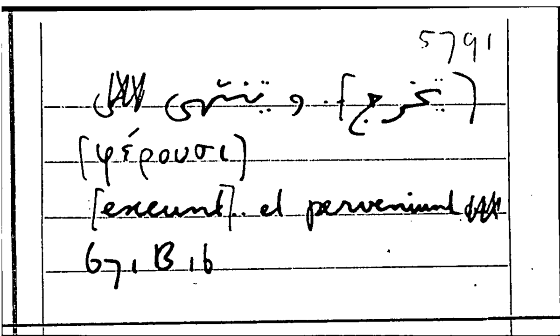 5791
(تخرج). و ينتهى
[φέρουσι]
[exeunt].. et perveniunt
671 B 16